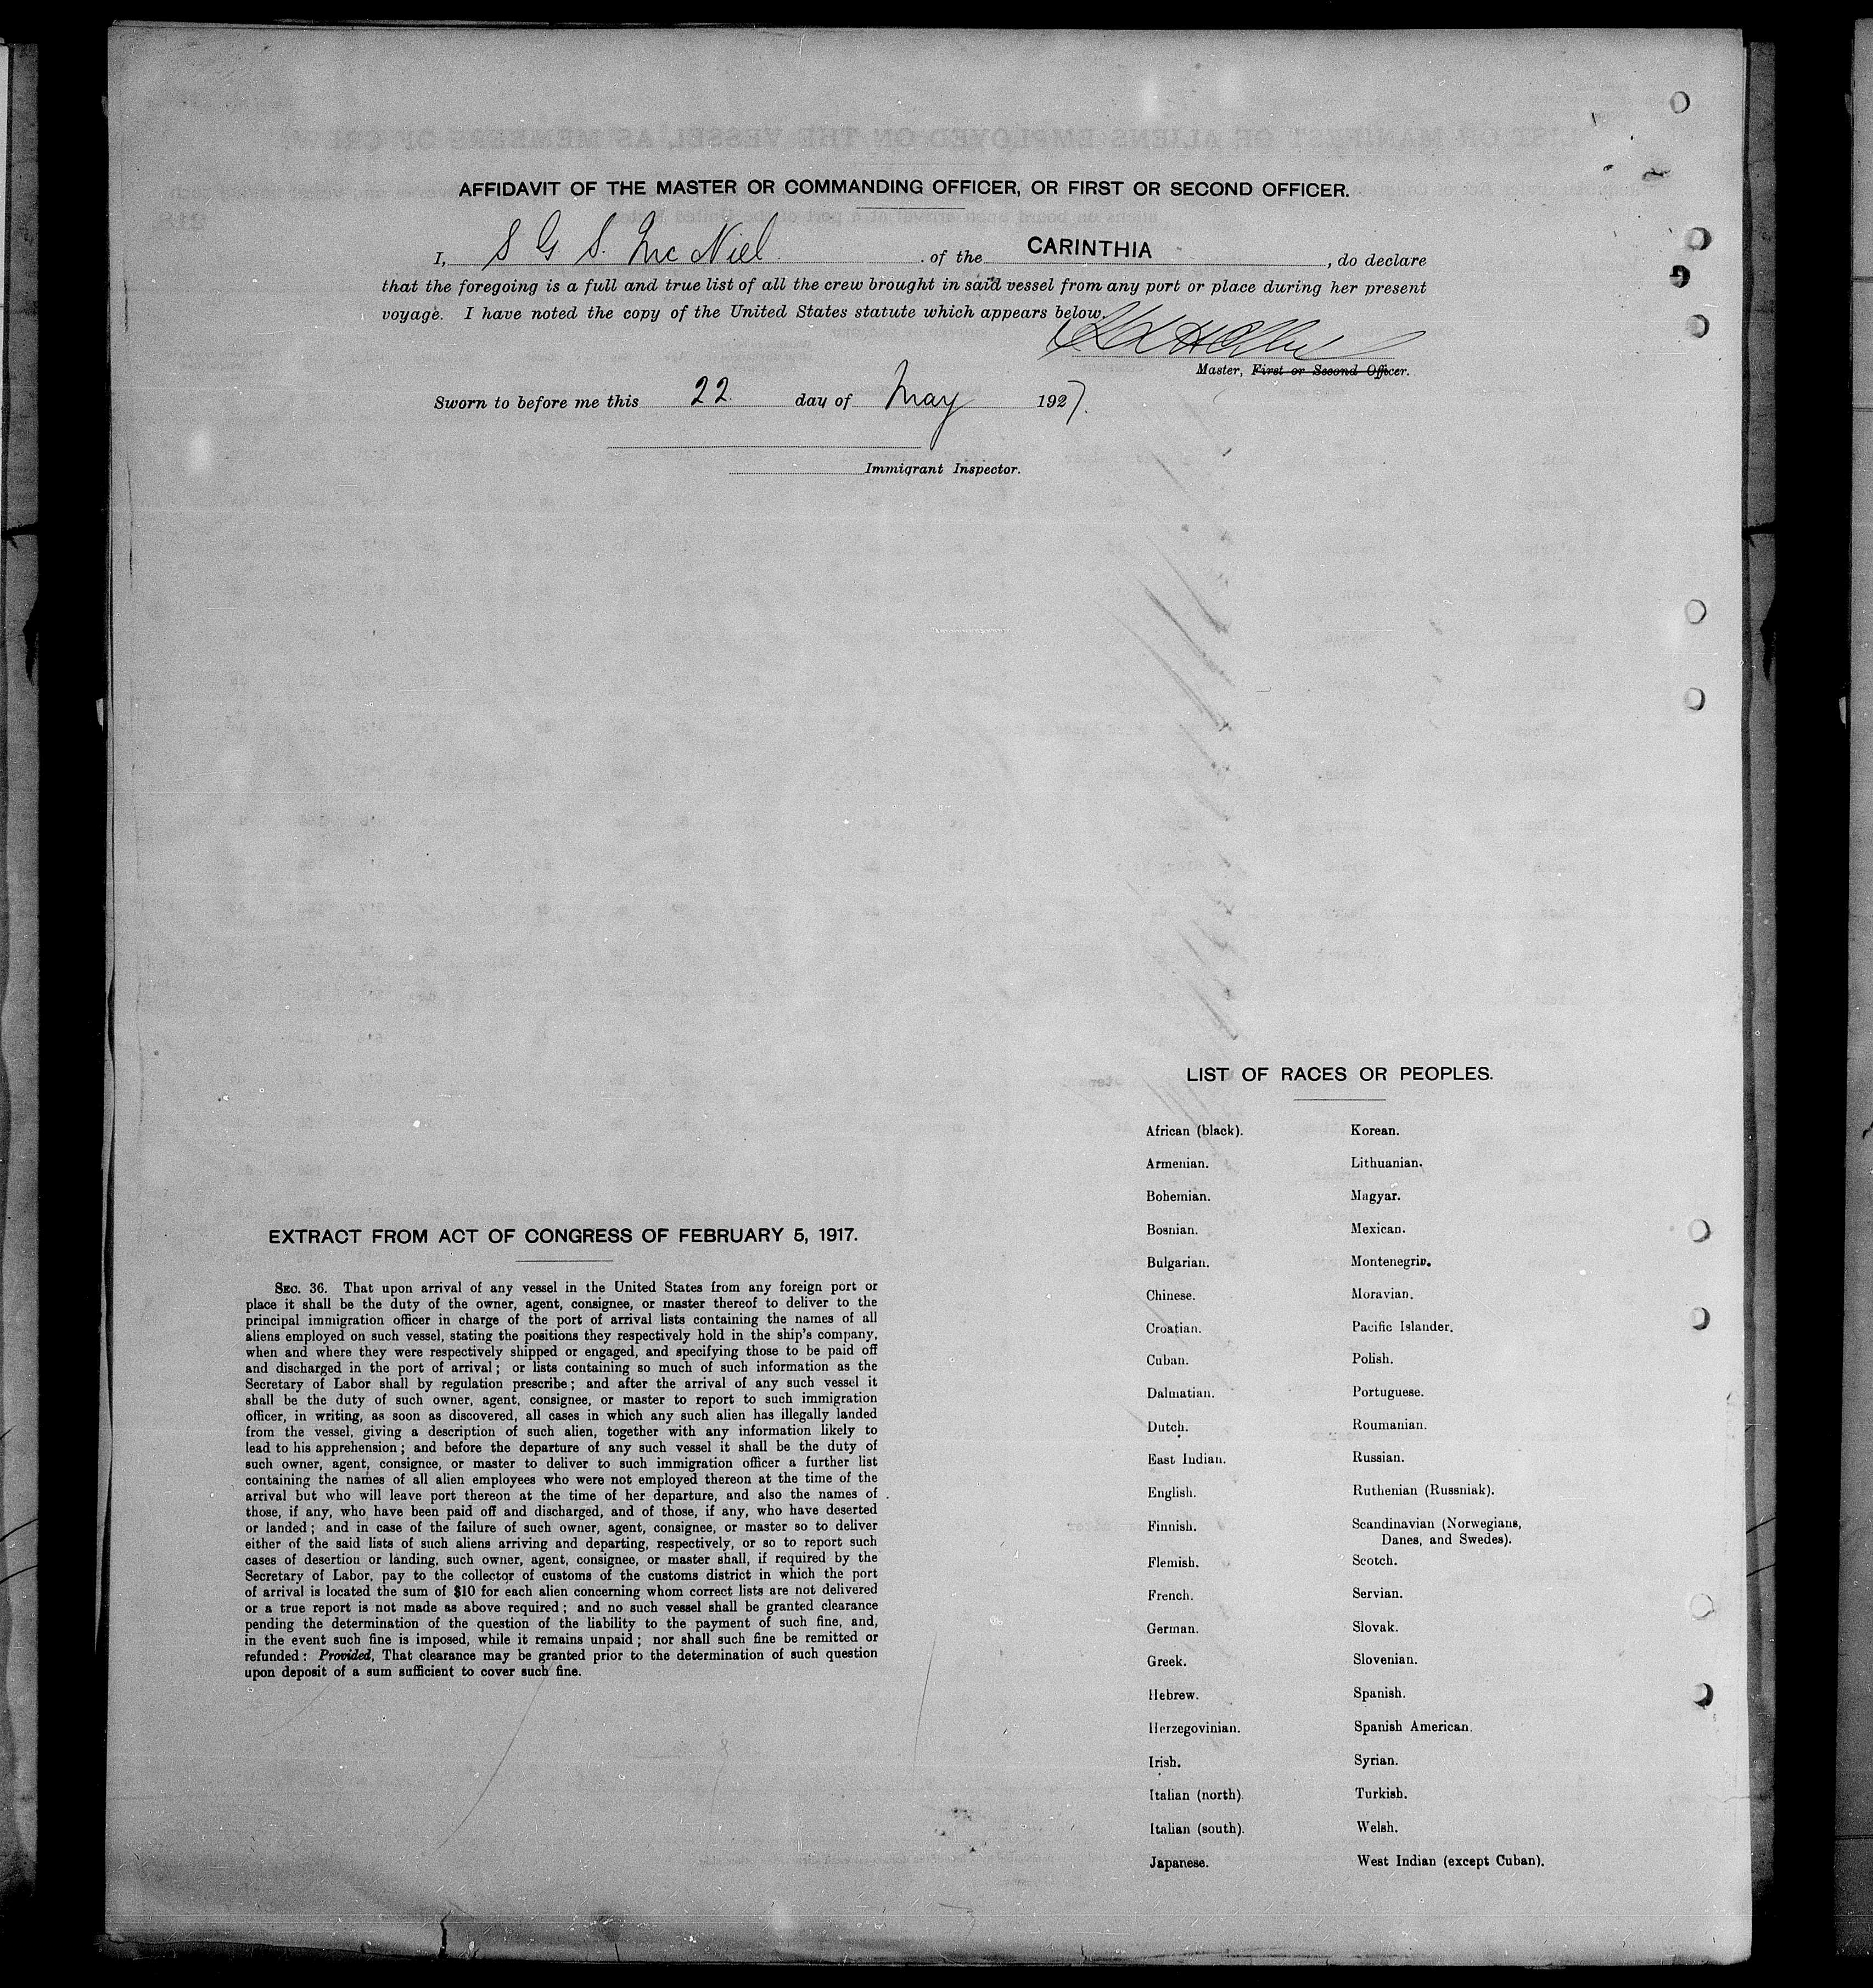 AFFIDAVIT OF THE MASTER OR COMMANDING OFFICER, OR FIRST OR SECOND OFFICER.
I, S G S. McNiel of the CARINTHIA, do declare
that the foregoing is a full and true list of all the crew brought in said vessel from any port or place during her present
voyage. I have noted the copy of the United States statute which appears below.
Master, First or Second Officer.
Sworn to before me this 22 day of May 1927.
Immigrant Inspector.
EXTRACT FROM ACT OF CONGRESS OF FEBRUARY 5, 1917.
SEC. 36. That upon arrival of any vessel in the United States from any foreign port or
place it shall be the duty of the owner, agent, consignee, or master thereof to deliver to the
principal immigration officer in charge of the port of arrival lists containing the names of all
aliens employed on such vessel, stating the positions they respectively hold in the ship's company,
when and where they were respectively shipped or engaged, and specifying those to be paid off
and discharged in the port of arrival; or lists containing so much of such information as the
Secretary of Labor shall by regulation prescribe; and after the arrival of any such vessel it
shall be the duty of such owner, agent, consignee, or master to report to such immigration
officer, in writing, as soon as discovered, all cases in which any such alien has illegally landed
from the vessel, giving a description of such alien, together with any information likely to
lead to his apprehension; and before the departure of any such vessel it shall be the duty of
such owner, agent, consignee, or master to deliver to such immigration officer a further list
containing the names of all alien employees who were not employed thereon at the time of the
arrival but who will leave port thereon at the time of her departure, and also the names of
those, if any, who have been paid off and discharged, and of those, if any, who have deserted
or landed; and in case of the failure of such owner, agent, consignee, or master so to deliver
either of the said lists of such aliens arriving and departing, respectively, or so to report such
cases of desertion or landing, such owner, agent, consignee, or master shall, if required by the
Secretary of Labor, pay to the collector of customs of the customs district in which the port
of arrival is located the sum of $10 for each alien concerning whom correct lists are not delivered
or a true report is not made as above required; and no such vessel shall be granted clearance
pending the determination of the question of the liability to the payment of such fine, and,
in the event such fine is imposed, while it remains unpaid; nor shall such fine be remitted or
refunded: Provided, That clearance may be granted prior to the determination of such question
upon deposit of a sum sufficient to cover such fine.
LIST OF RACES OR PEOPLES.
African (black).
Armenian.
Bohemian.
Bosnian.
Bulgarian.
Chinese.
Croatian.
Cuban.
Dalmatian.
Dutch.
East Indian.
English.
Finnish.
Flemish.
French.
German.
Greek.
Hebrew.
Herzegovinian.
Irish.
Italian (north)
Italian (south).
Japanese.
Korean.
Lithuanian.
Magyar.
Mexican.
Montenegrin.
Moravian.
Pacific Islander.
Polish.
Portuguese.
Roumanian.
Russian.
Ruthenian (Russniak).
Scandinavian (Norwegians,
Danes, and Swedes).
Scotch.
Servian.
Slovak.
Slovenian.
Spanish.
Spanish American.
Syrian.
Turkish.
Welsh.
West Indian (except Cuban).